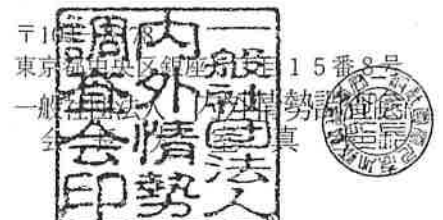 〒10 78
東京都中央区銀座 丁目15番8号
一般社団法人 内外情勢調査会
会 真
一般社団法人
内外情勢
調査会印